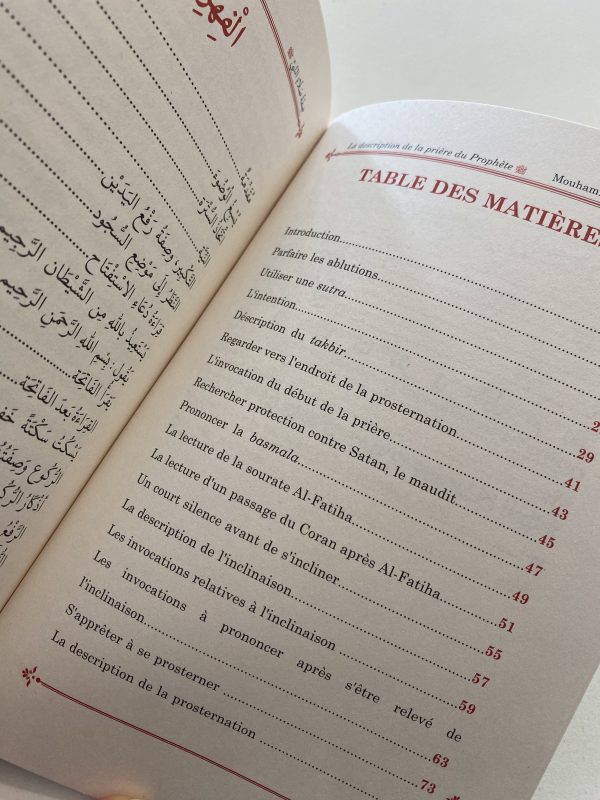 الْفِقْهِيُّ
التَّكْبِيرُ، وَصِفَةُ رَفْعِ الْيَدَيْنِ
النَّظَرُ إِلَى مَوْضِعِ السُّجُودِ
قِرَاءَةُ دُعَاءِ الِاسْتِفْتَاحِ
يَسْتَعِيذُ بِاللهِ مِنَ الشَّيْطَانِ الرَّجِيمِ
يَقُولُ: بِسْمِ اللهِ الرَّحْمَنِ الرَّحِيمِ
يَقْرَأُ الْفَاتِحَةَ
الْقِرَاءَةُ بَعْدَ الْفَاتِحَةِ
يَسْكُتُ سَكْتَةً
الرُّكُوعُ وَصِفَتُهُ
أَذْكَارُ الرُّكُوعِ
La description de la prière du Prophète ﷺ Mouham
TABLE DES MATIÈRE
Introduction
Parfaire les ablutions
Utiliser une sutra
L'intention 2
Déscription du takbir 29
Regarder vers l'endroit de la prosternation 41
L'invocation du début de la prière 43
Rechercher protection contre Satan, le maudit 45
Prononcer la basmala 47
La lecture de la sourate Al-Fatiha 49
La lecture d'un passage du Coran après Al-Fatiha 51
Un court silence avant de s'incliner 55
La description de l'inclinaison 57
Les invocations relatives à l'inclinaison 59
Les invocations à prononcer après s'être relevé de
l'inclinaison 63
S'apprêter à se prosterner 73
La description de la prosternation